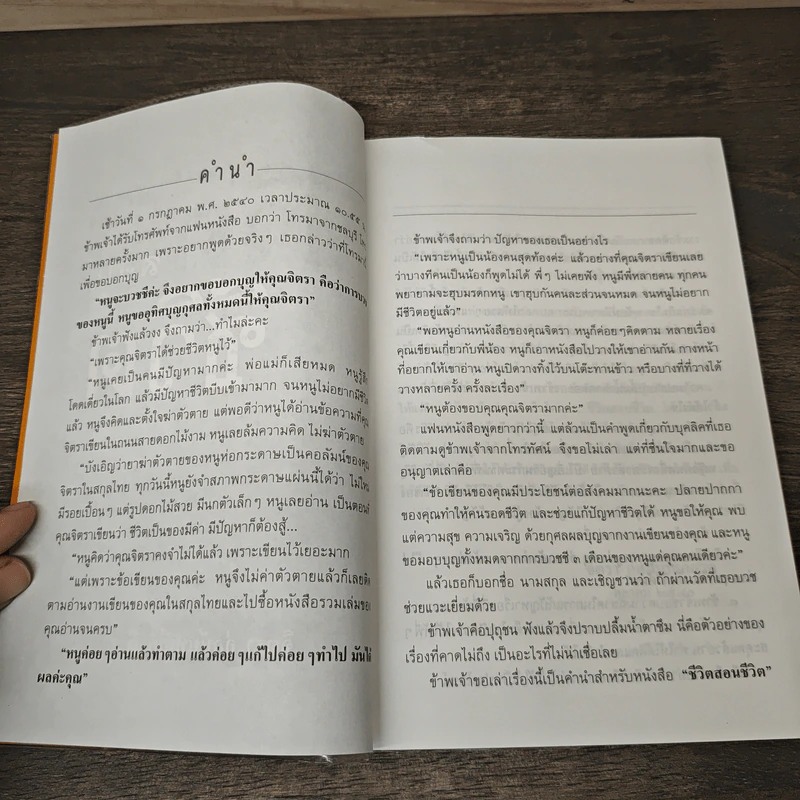 คำนำ
เช้าวันที่ ๑ กรกฎาคม พ.ศ. ๒๕๔๐ เวลาประมาณ ๑๐.๕๕ น.
ข้าพเจ้าได้รับโทรศัพท์จากแฟนหนังสือ บอกว่า โทรมาจากชลบุรี
มาหลายครั้งมาก เพราะอยากพูดด้วยจริงๆ เธอกล่าวว่าที่โทรมานี้
เพื่อขอบอกบุญ
“หนูจะบวชชีค่ะ จึงอยากขอบอกบุญให้คุณจิตรา คือว่าการบวช
ของหนูนี้ หนูขออุทิศบุญกุศลทั้งหมดนี้ให้คุณจิตรา”
ข้าพเจ้าฟังแล้วงง จึงถามว่า...ทำไมล่ะคะ
“เพราะคุณจิตราได้ช่วยชีวิตหนูไว้”
“หนูเคยเป็นคนมีปัญหามากค่ะ พ่อแม่ก็เสียหมด หนูรู้สึก
โดดเดี่ยวในโลก แล้วมีปัญหาชีวิตบีบเข้ามามาก จนหนูไม่อยากมีชีวิต
แล้ว หนูจึงคิดและตั้งใจฆ่าตัวตาย แต่พอดีว่าหนูได้อ่านข้อความที่คุณ
จิตราเขียนในถนนสายดอกไม้งาม หนูเลยล้มความคิด ไม่ฆ่าตัวตาย
“บังเอิญว่ายาฆ่าตัวตายของหนูห่อกระดาษเป็นคอลัมน์ของคุณ
จิตราในสกุลไทย ทุกวันนี้หนูยังจำสภาพกระดาษแผ่นนี้ได้ว่า ไม่ใหม่
มีรอยเปื้อนๆ แต่รูปดอกไม้สวย มีนกตัวเล็กๆ หนูเลยอ่าน เป็นตอนที่
คุณจิตราเขียนว่า ชีวิตเป็นของมีค่า มีปัญหาก็ต้องสู้...
“หนูคิดว่าคุณจิตราคงจำไม่ได้แล้ว เพราะเขียนไว้เยอะมาก
“แต่เพราะข้อเขียนของคุณค่ะ หนูจึงไม่ฆ่าตัวตายแล้วก็เลยติด
ตามอ่านงานเขียนของคุณในสกุลไทยและไปซื้อหนังสือรวมเล่มของ
คุณอ่านจนครบ”
“หนูค่อยๆอ่านแล้วทำตาม แล้วค่อยๆแก้ไปค่อยๆทำไป มันได้
ผลค่ะคุณ”
ข้าพเจ้าจึงถามว่า ปัญหาของเธอเป็นอย่างไร
“เพราะหนูเป็นน้องคนสุดท้องค่ะ แล้วอย่างที่คุณจิตราเขียนเลย
ว่าบางทีคนเป็นน้องก็พูดไม่ได้ พี่ๆ ไม่เคยฟัง หนูมีพี่หลายคน ทุกคน
พยายามจะฮุบมรดกหนู เขาฮุบกันคนละส่วนจนหมด จนหนูไม่อยาก
มีชีวิตอยู่แล้ว”
“พอหนูอ่านหนังสือของคุณจิตรา หนูก็ค่อยๆคิดตาม หลายเรื่อง
คุณเขียนเกี่ยวกับพี่น้อง หนูก็เอาหนังสือไปวางให้เขาอ่านกัน กางหน้า
ที่อยากให้เขาอ่าน หนูเปิดวางทิ้งไว้บนโต๊ะทานข้าว หรือบางทีที่วางได้
วางหลายครั้ง ครั้งละเรื่อง”
“หนูต้องขอบคุณคุณจิตรามากค่ะ”
แฟนหนังสือพูดยาวกว่านี้ แต่ล้วนเป็นคำพูดเกี่ยวกับบุคลิคที่เธอ
ติดตามดูข้าพเจ้าจากโทรทัศน์ จึงขอไม่เล่า แต่ที่ชื่นใจมากและขอ
อนุญาตเล่าคือ
“ข้อเขียนของคุณมีประโยชน์ต่อสังคมมากนะคะ ปลายปากกา
ของคุณทำให้คนรอดชีวิต และช่วยแก้ปัญหาชีวิตได้ หนูขอให้คุณ พบ
แต่ความสุข ความเจริญ ด้วยกุศลผลบุญจากงานเขียนของคุณ และหนู
ขอมอบบุญทั้งหมดจากการบวชชี ๓ เดือนของหนูแด่คุณคนเดียวค่ะ”
แล้วเธอก็บอกชื่อ นามสกุล และเชิญชวนว่า ถ้าผ่านวัดที่เธอบวช
ช่วยแวะเยี่ยมด้วย
ข้าพเจ้าคือปุถุชน ฟังแล้วจึงปราบปลื้มน้ำตาซึม นี่คือตัวอย่างของ
เรื่องที่คาดไม่ถึง เป็นอะไรที่ไม่น่าเชื่อเลย
ข้าพเจ้าขอเล่าเรื่องนี้เป็นคำนำสำหรับหนังสือ “ชีวิตสอนชีวิต”